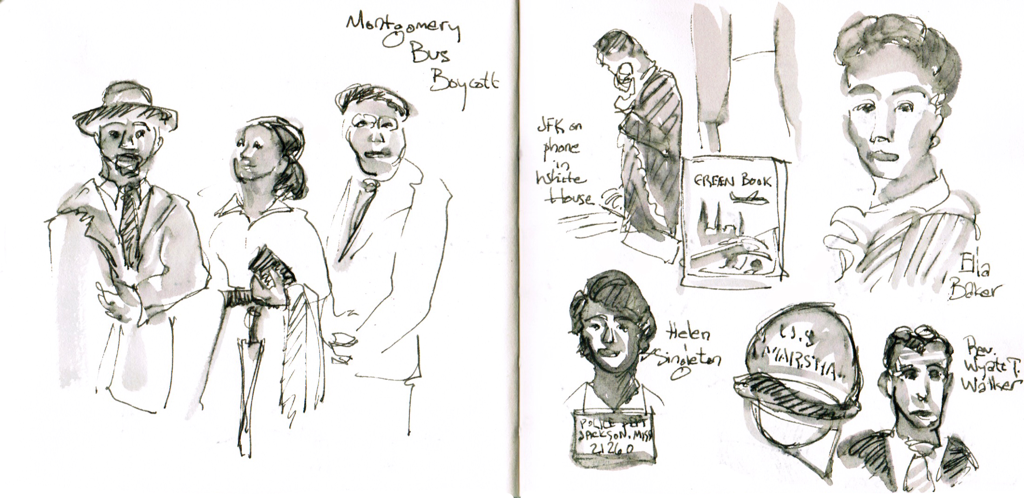 Montgomery
Bus
Boycott
JFK on
phone
in
White
House
GREEN BOOK
Ella
Baker
Helen
Singleton
POLICE DEPT
JACKSON, MISS
21260
U.S
MARSHAL
Rev.
Wyatt T.
Walker